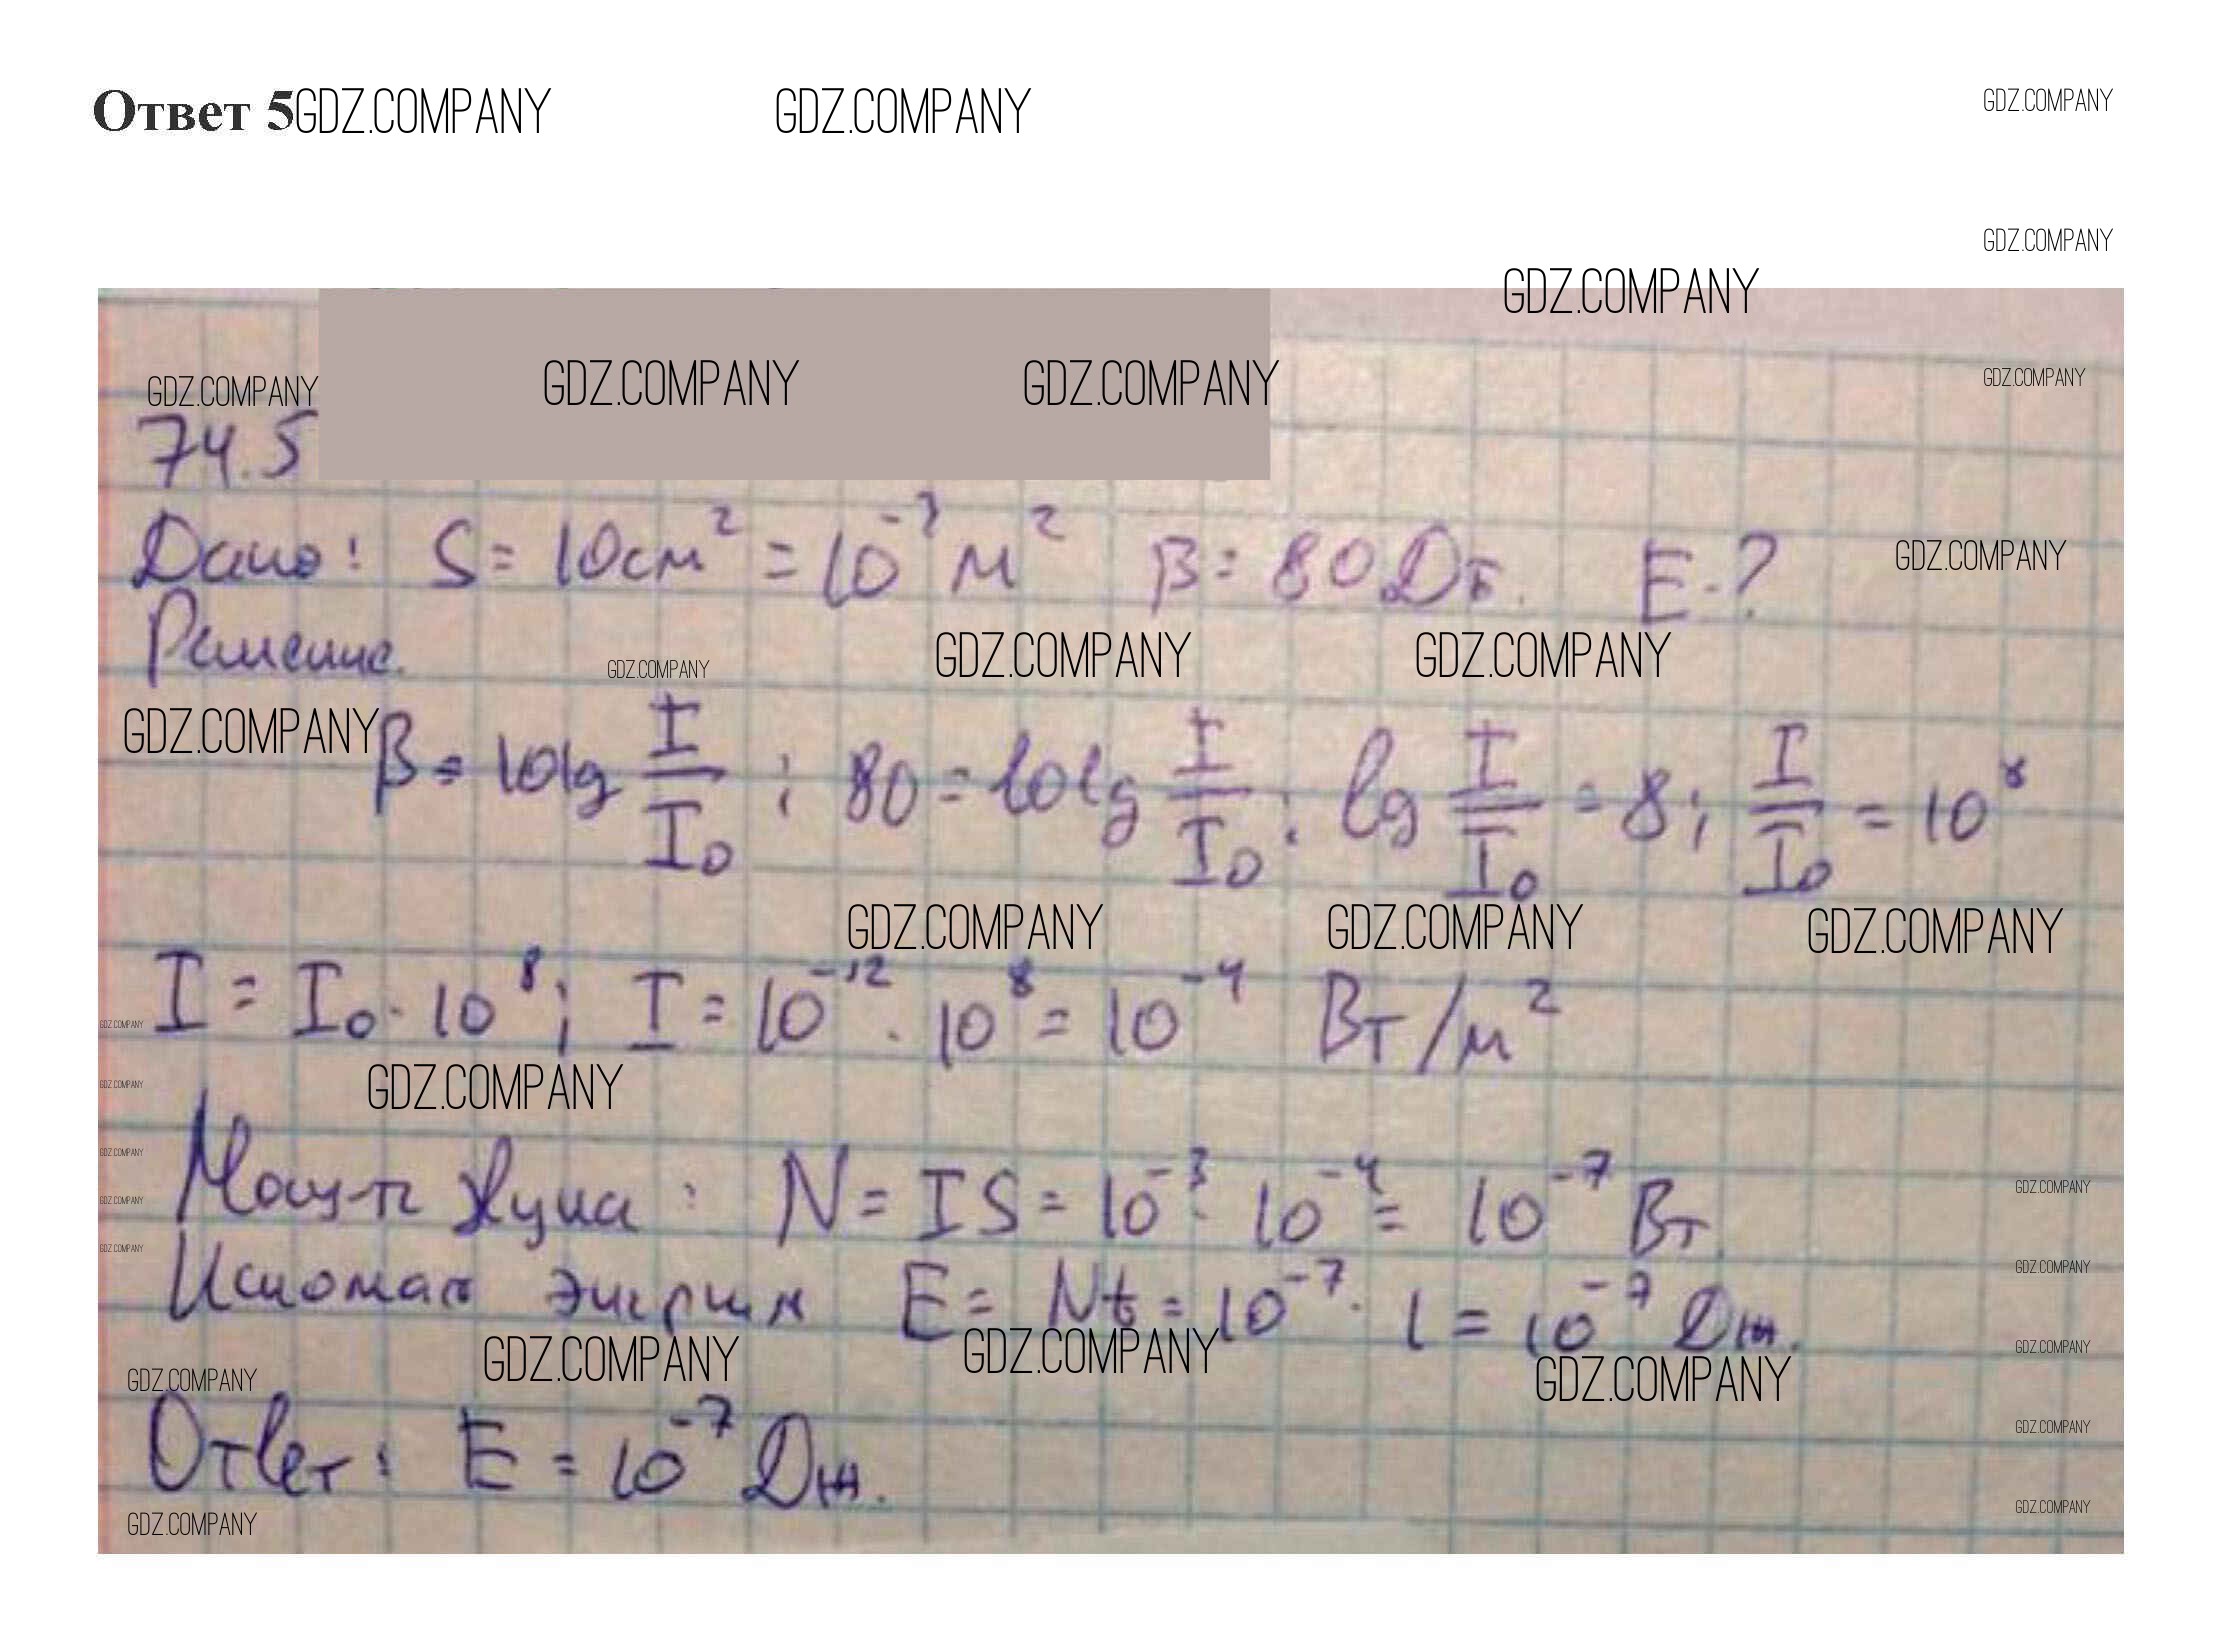 Ответ 5GDZ.COMPANY GDZ.COMPANY GDZ.COMPANY
GDZ.COMPANY
GDZ.COMPANY
GDZ.COMPANY GDZ.COMPANY GDZ.COMPANY GDZ.COMPANY
74.5
Дано: S = 10см² = 10⁻³ м² β = 80 Дб. E - ? GDZ.COMPANY
Решение. GDZ.COMPANY GDZ.COMPANY GDZ.COMPANY
GDZ.COMPANY β = 10lg I/I₀ ; 80 = 10lg I/I₀ ; lg I/I₀ = 8; I/I₀ = 10⁸
GDZ.COMPANY GDZ.COMPANY GDZ.COMPANY
I = I₀ · 10⁸; I = 10⁻¹² · 10⁸ = 10⁻⁴ Вт/м²
GDZ.COMPANY
GDZ.COMPANY
GDZ.COMPANY
GDZ.COMPANY
Мощ-ть звука: N = IS = 10⁻³ · 10⁻⁴ = 10⁻⁷ Вт. GDZ.COMPANY
GDZ.COMPANY
GDZ.COMPANY
Искомая энергия E = Nt = 10⁻⁷ · 1 = 10⁻⁷ Дж. GDZ.COMPANY
GDZ.COMPANY
GDZ.COMPANY GDZ.COMPANY GDZ.COMPANY GDZ.COMPANY
Ответ: E = 10⁻⁷ Дж. GDZ.COMPANY
GDZ.COMPANY GDZ.COMPANY